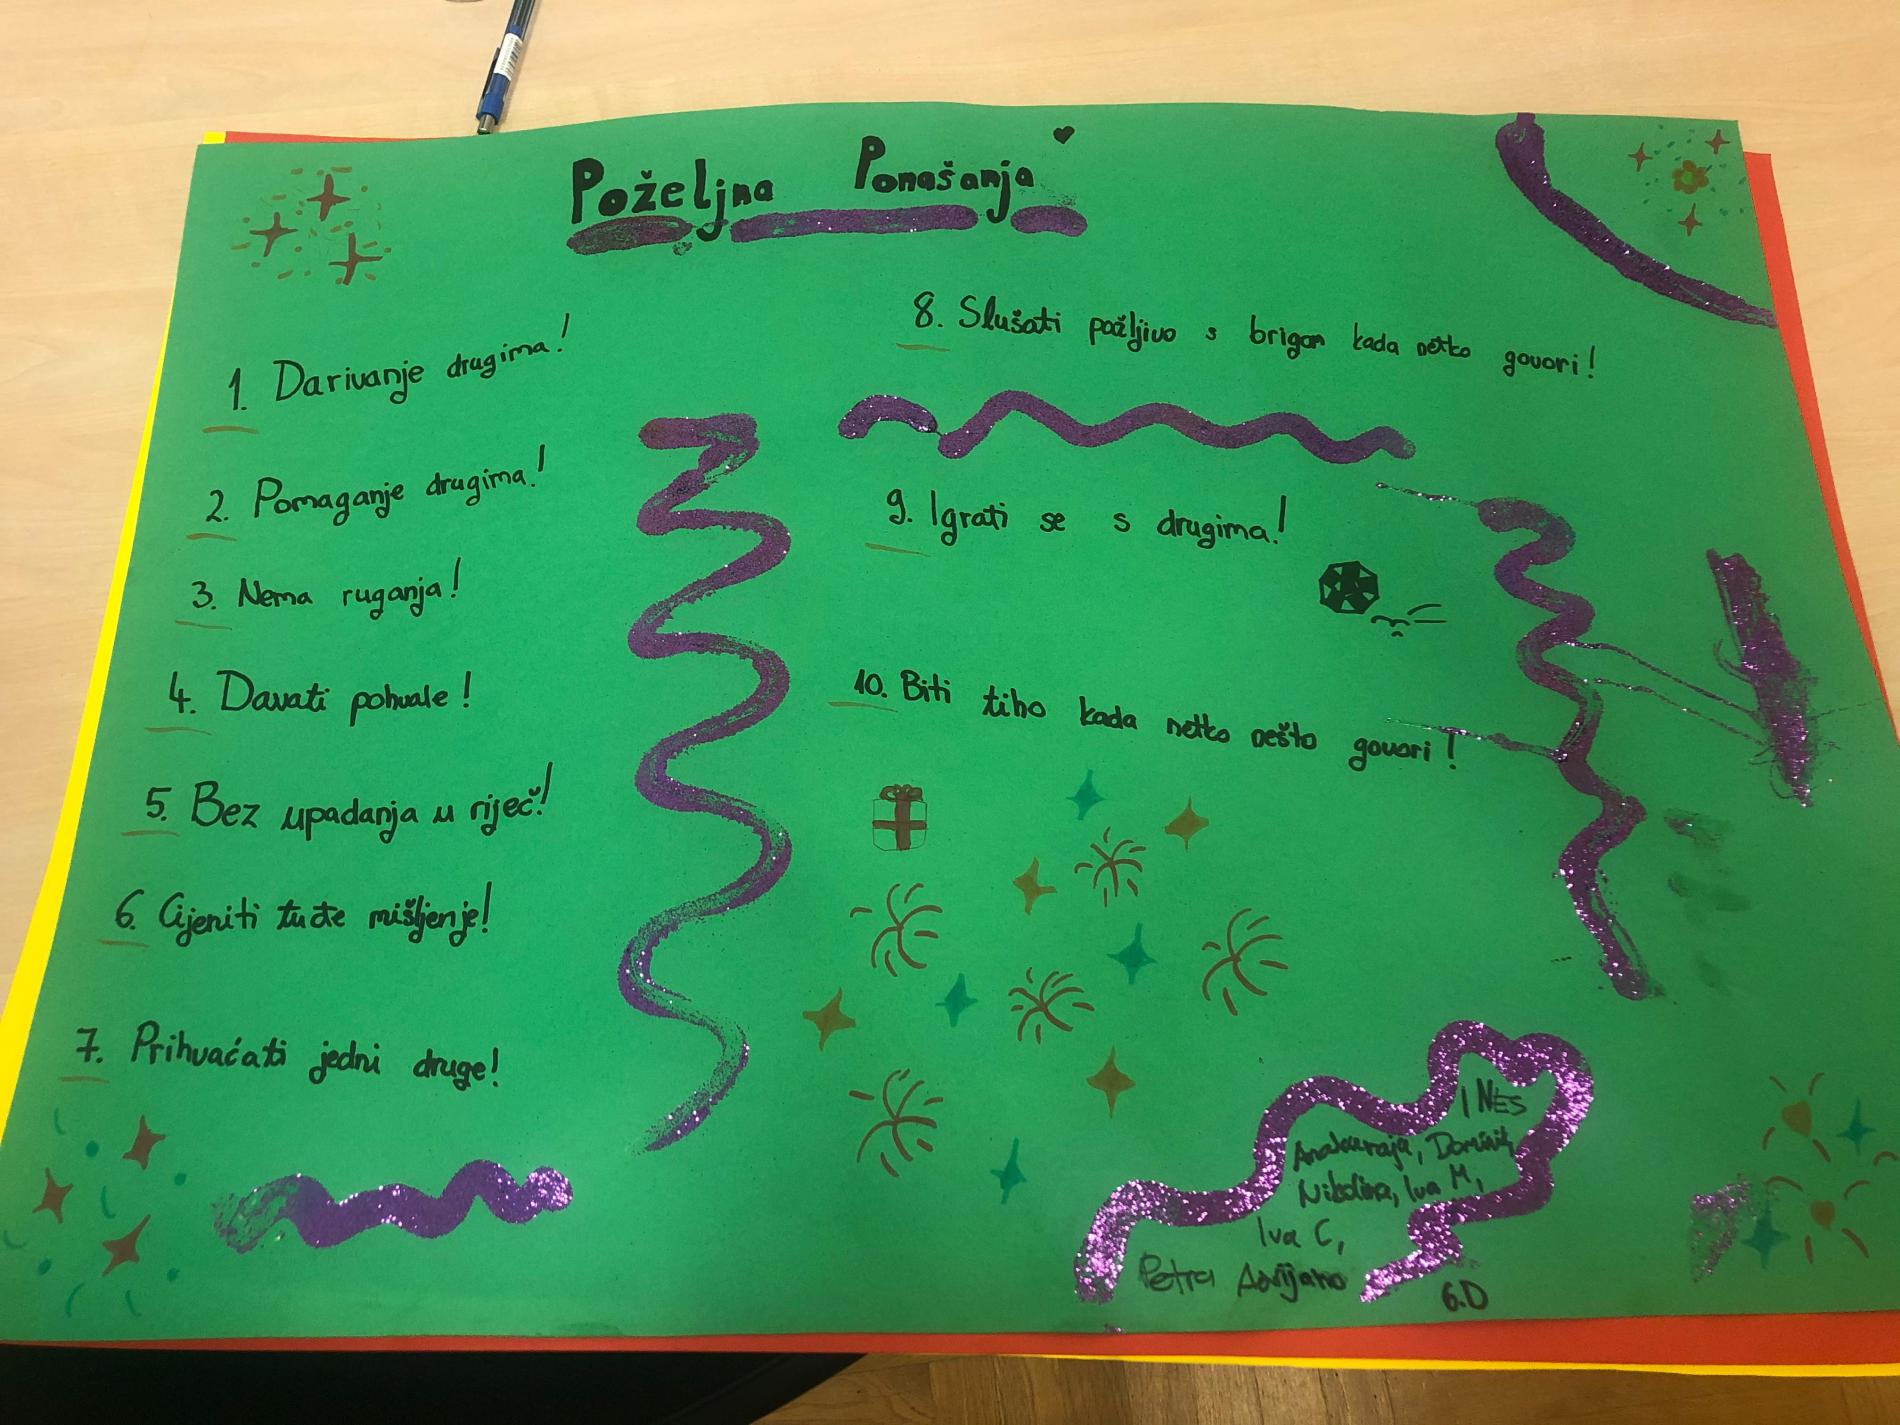 Poželjna Ponašanja
1. Darivanje drugima!
2. Pomaganje drugima!
3. Nema ruganja!
4. Davati pohvale!
5. Bez upadanja u riječ!
6. Cijeniti tuđe mišljenje!
7. Prihvaćati jedni druge!
8. Slušati pažljivo s brigom kada netko govori!
9. Igrati se s drugima!
10. Biti tiho kada netko nešto govori!
INES
Dominik,
Nikolina, Iva M,
Iva C,
Petra Adrijano
6.D